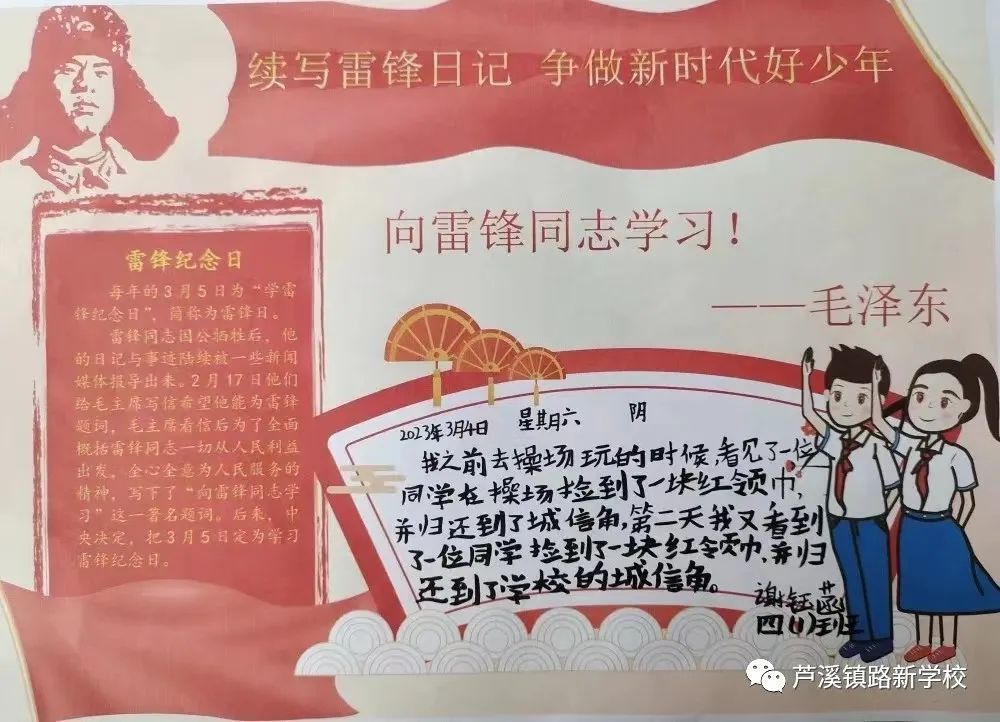 续写雷锋日记 争做新时代好少年
向雷锋同志学习！
——毛泽东
雷锋纪念日
每年的3月5日为“学雷
锋纪念日”，简称为雷锋日。
雷锋同志因公牺牲后，他
的日记与事迹陆续被一些新闻
媒体报导出来。2月17日他们
给毛主席写信希望他能为雷锋
题词，毛主席看信后为了全面
概括雷锋同志一切从人民利益
出发，全心全意为人民服务的
精神，写下了“向雷锋同志学
习”这一著名题词。后来，中
央决定，把3月5日定为学习
雷锋纪念日。
2023年3月4日 星期六 阴
我之前去操场玩的时候，看见了一位
同学在操场捡到了一块红领巾，
并归还到了城信角，第二天我又看到
了一位同学捡到了一块红领巾，并归
还到了学校的城信角。
谢钰菡
四(1)班
芦溪镇路新学校